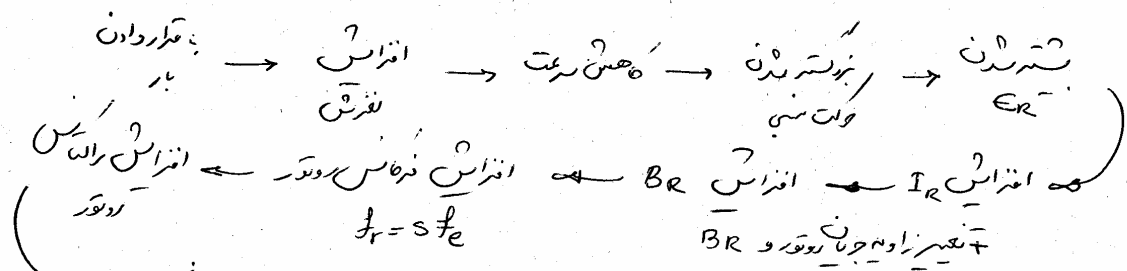 با قرار دادن بار → افزایش لغزش → کاهش سرعت → بزرگتر شدن حرکت نسبی → بیشتر شدن eR
افزایش IR ← افزایش BR ← افزایش فرکانس روتور ← افزایش راکتانس روتور
+ تغییر زاویه جریان روتور و BR fr = s fe